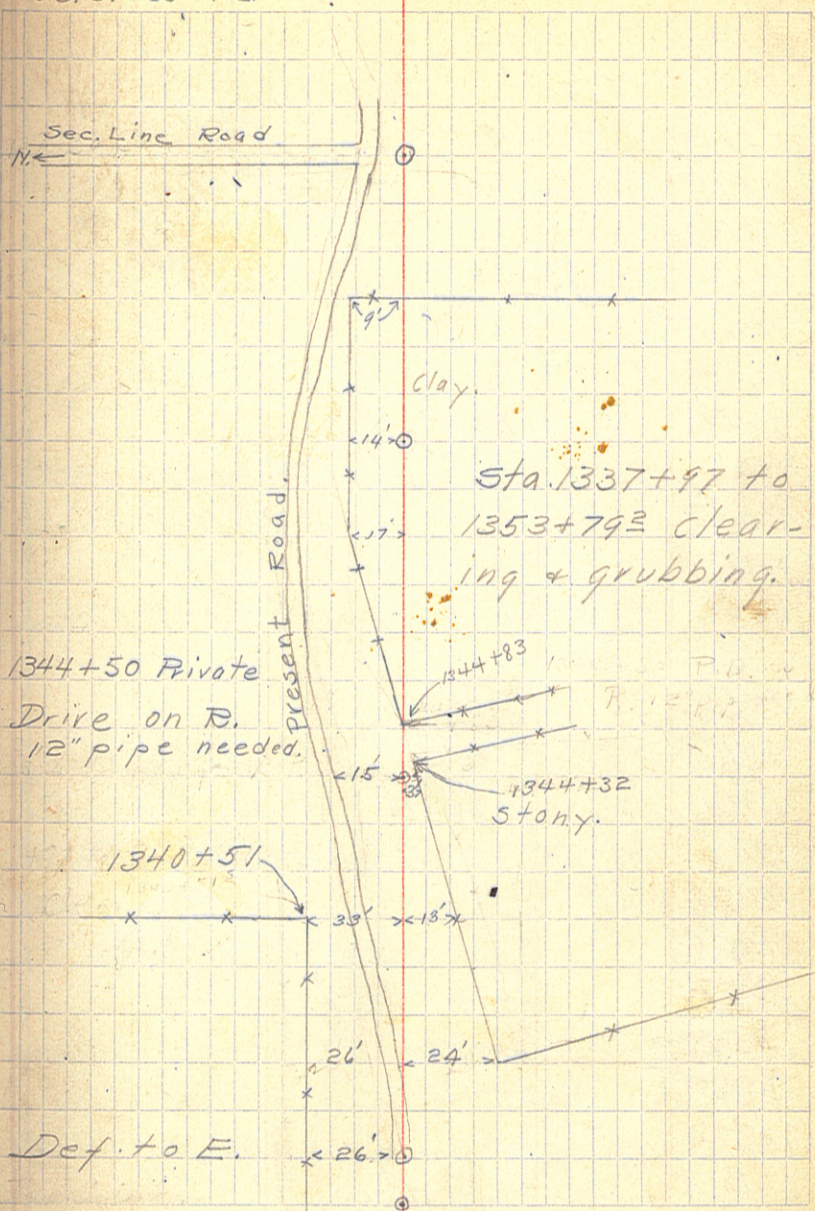 Sec. Line Road
N.
9'
Clay.
14'
Sta. 1337+97 to
1353+79² Clear-
ing & grubbing.
17'
Present Road.
1344+83
1344+50 Private
Drive on R.
12" pipe needed.
R. 12"
15'
3'
1344+32
Stony.
1340+51
33'
13'
26'
24'
Def. to E.
26'